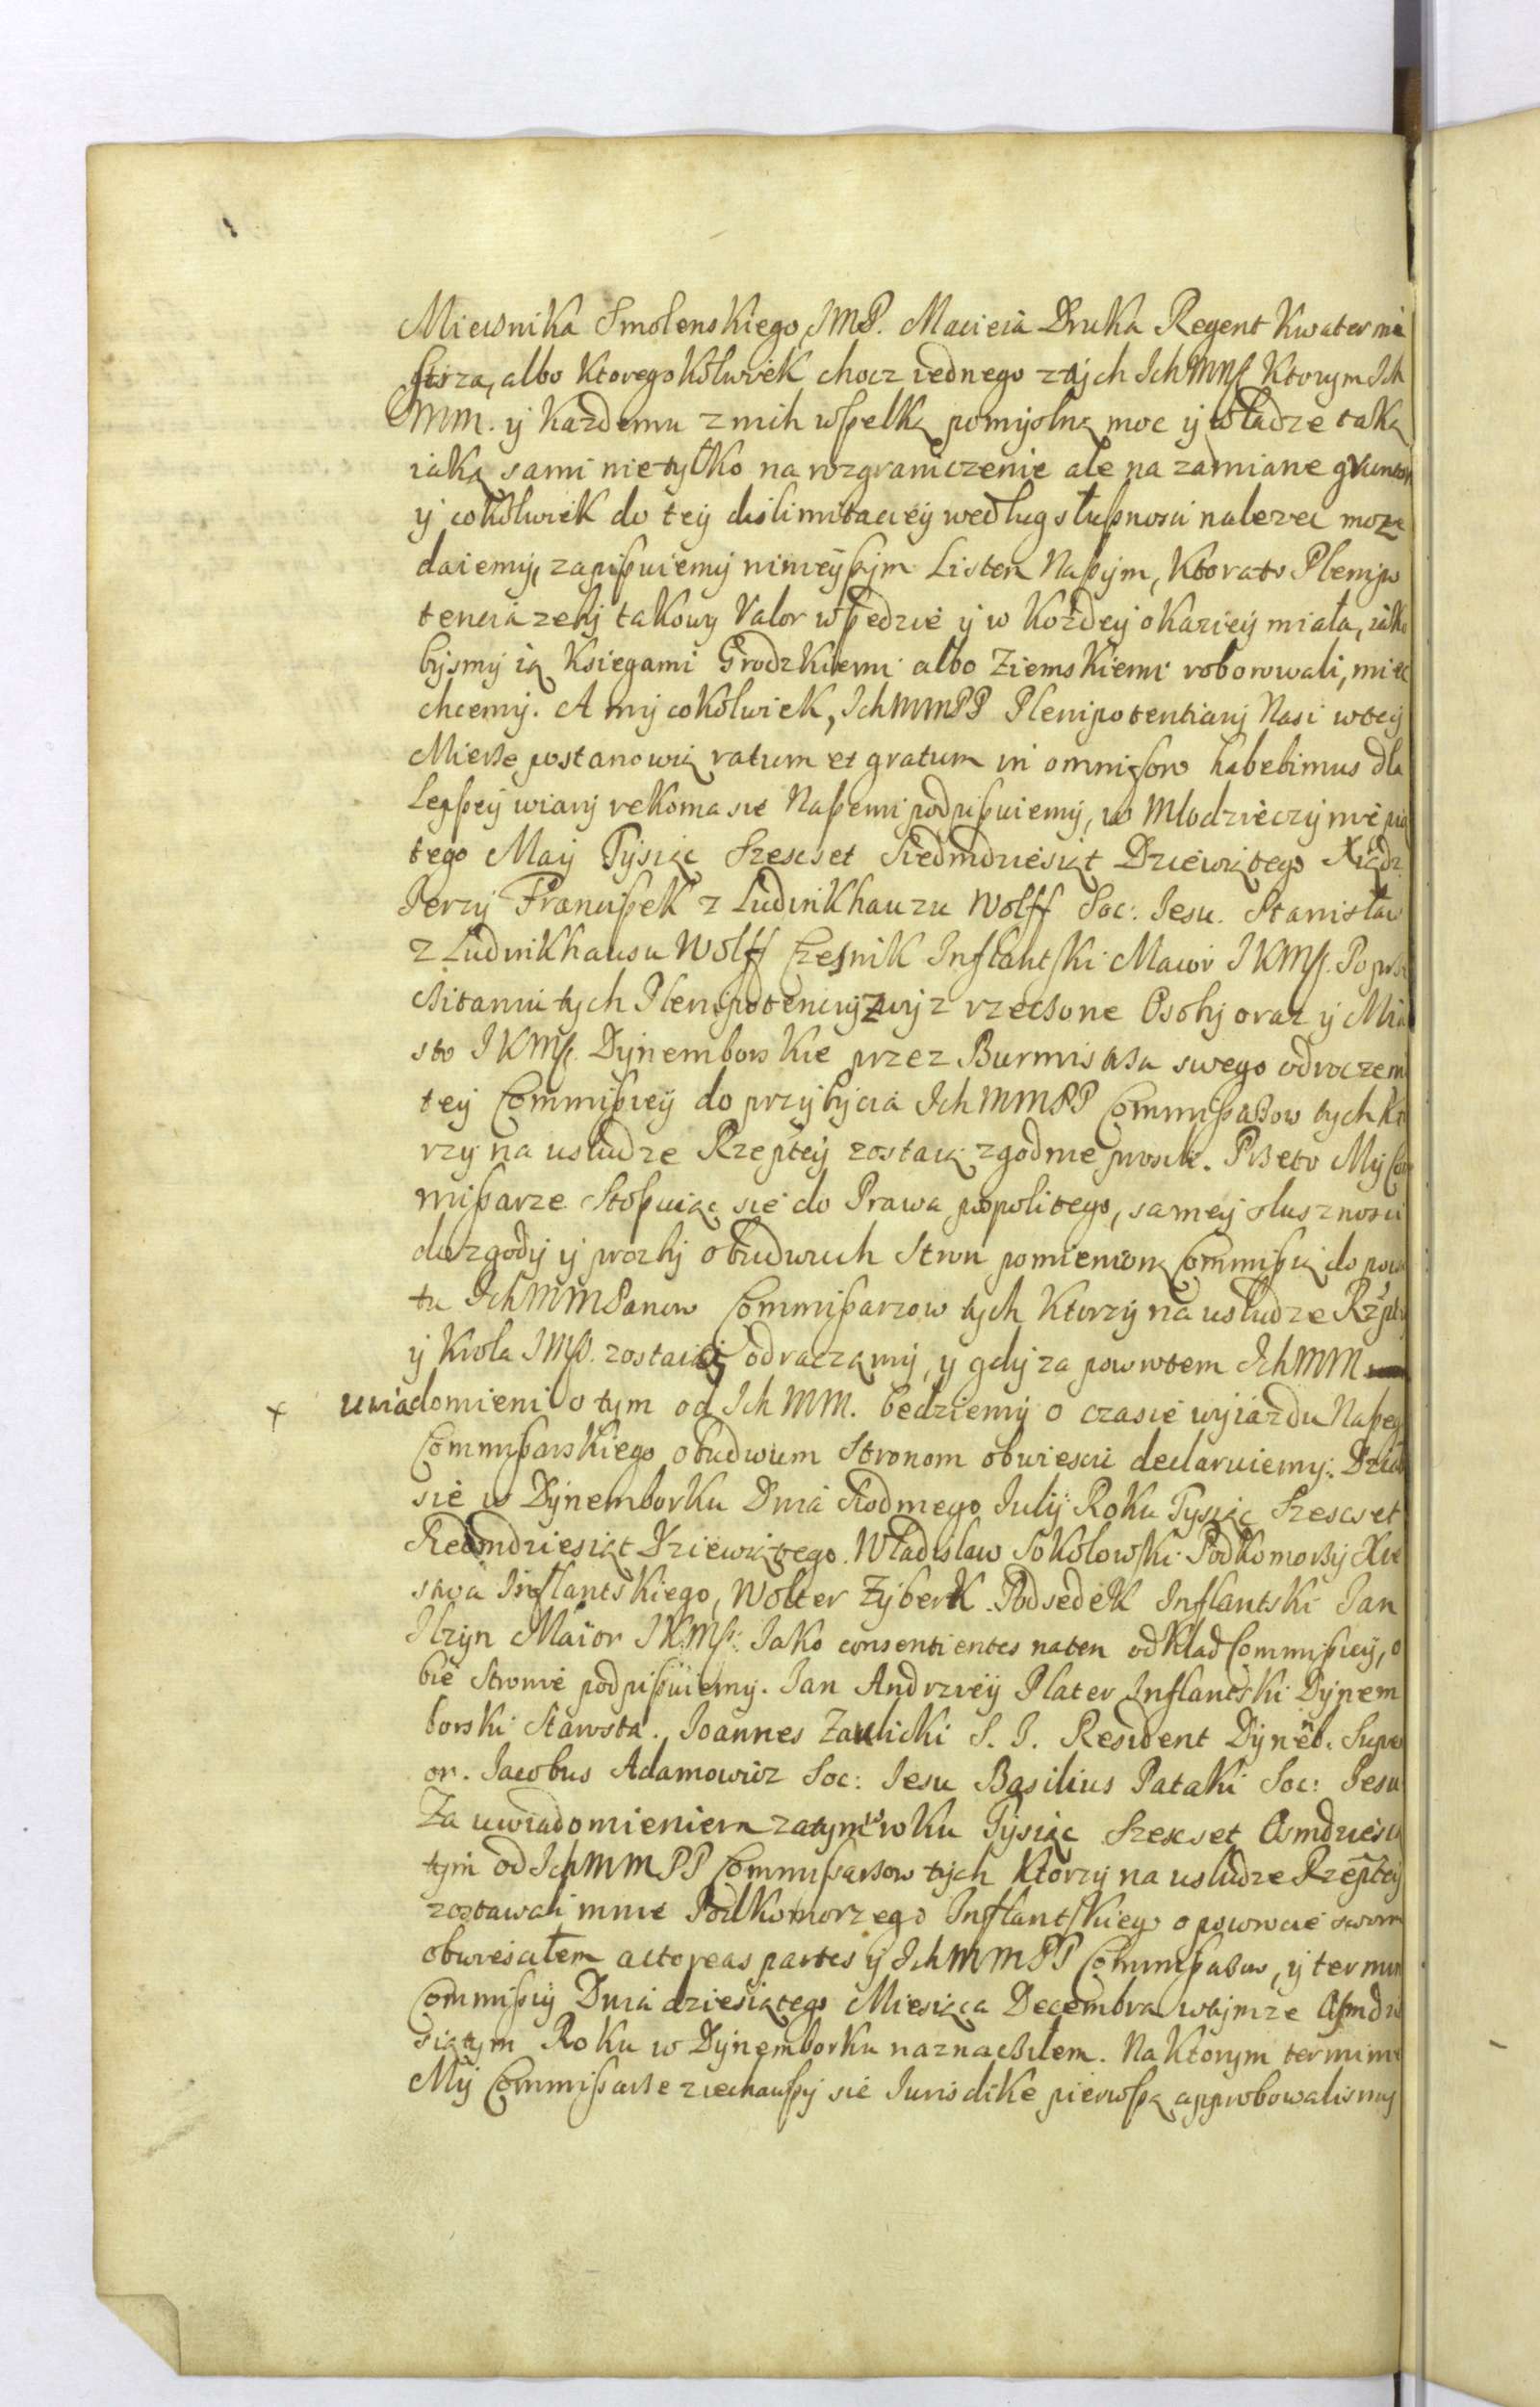 Miecznika Smolenskiego JMP. Macieia Druka Regent Kwatermi
strza, albo ktoregokolwiek chocz iednego z tych Ich Mm którym Ich
Mm. ÿ kazdemu z nich wszelką pomyslną moc ÿ władze taką
iaką sami nie tylko na rozgraniczenie ale na zamiane gruntow
ÿ cokolwiek do teÿ dislimitacieÿ według słuszności nalezec może
daiemÿ, zapisuiemÿ ninieÿszÿm Listem Naszÿm, ktora to Plenipo
tencia zebÿ takowÿ Valor wszędzie ÿ w kożdeÿ okazieÿ miała, iako
bÿsmÿ ią Księgami Grodzkiemi albo Ziemskiemi roborowali, miec
chcemÿ. A mÿ cokolwiek, Ich MmPP Plenipotentiarÿ Nasi w teÿ
Mierze postanowią ratum et gratum in omni foro habebimus dla
Lepszeÿ wiarÿ rekoma sie Naszemi podpisuiemÿ, w Mlodzieczÿnie pią
tego Maÿ Tÿsiąc Szescset Siedmdziesiąt Dziewiątego Xiądz
Jerzÿ Franciszek z Ludinkhauzu Wolff Soc: Jesu. Stanisław
z Ludinkhausu Wolff Czesnik Inflantski Maior JKMsc. Po prze
czitaniu tÿch Plenipotencÿi zwÿz rzeczone Osobÿ oraz ÿ Mia
sto JKMsc. Dÿnemborskie przez Burmistrza swego odroczeni
teÿ Commissieÿ do przÿbÿcia Ich MmPP Commissarzow tÿch kto
rzÿ na usłudze Rzeptteÿ zostaią zgodnie prosili. Przeto Mÿ Com
missarze Stosuiąc się do Prawa pospolitego, sameÿ slusznosci
do zgodÿ ÿ prozbÿ obudwuch Stron pomienioną Commissią do powro
tu Ich MmPanow Commissarzow tÿch ktorzÿ na usłudze Rzptteÿ
ÿ Krola JMsc. zostaią odraczamÿ, ÿ gdÿ za powrotem Ich Mm
x uwiadomieni o tym od Ich Mm. będziemÿ o czasie wÿiazdu Naszego
Commissarskiego obudwum Stronom obwiescic declaruiemÿ. Działo
sie w Dÿnemborku Dnia Siodmego Julÿ Roku Tysiąc Szescset
Siedmdziesiąt Dziewiątego. Władislaw Sokołowski Podkomorzÿ Xie
stwa Inflantskiego, Wolter Zÿberk Podsedek Inflantski Jan
Ilzÿn Maior JKMsc. Jako consentientes na ten odkład Commissieÿ, o
bie Stronie podpisuiemÿ. Jan Andrzeÿ Plater Inflantski Dÿnem
borski Starosta. Joannes Zaulicki S. J. Resident Dÿnēb. Superi
or. Jacobus Adamowicz Soc: Jesu Basilius Pataki Soc: Jesu
Za uwiadomieniem zatym w roku Tÿsiąc Szescset Osmdziesią
tÿm od Ich MmPP Commissarzow tÿch ktorzÿ na usłudze Rzeptteÿ
zostawali mnie Podkomorzego Inflantskiego o powrocie swoim
obwiesciłem actoreas partes ÿ Ich MmPP Commissarzow, ÿ termin
Commissÿi Dnia dziesiątego Miesiąca Decembra w tÿmze Osmdzie
siątÿm Roku w Dÿnemborku naznaczÿlem. Na ktorym terminie
Mÿ Commissarze ziechawszÿ sie Jurisdike pierwszą approbowalismÿ